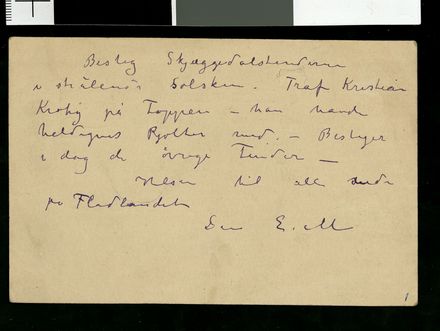 Besteg Skjæggedalstinderne
i strålende Solskin. Traf Kristian
Krohg på Toppen – han havde
heldigvis Pjolter med. – Bestiger
i dag de øvrige Tinder –
Hilsen til alle
på Fladlandet
Din E. M
1